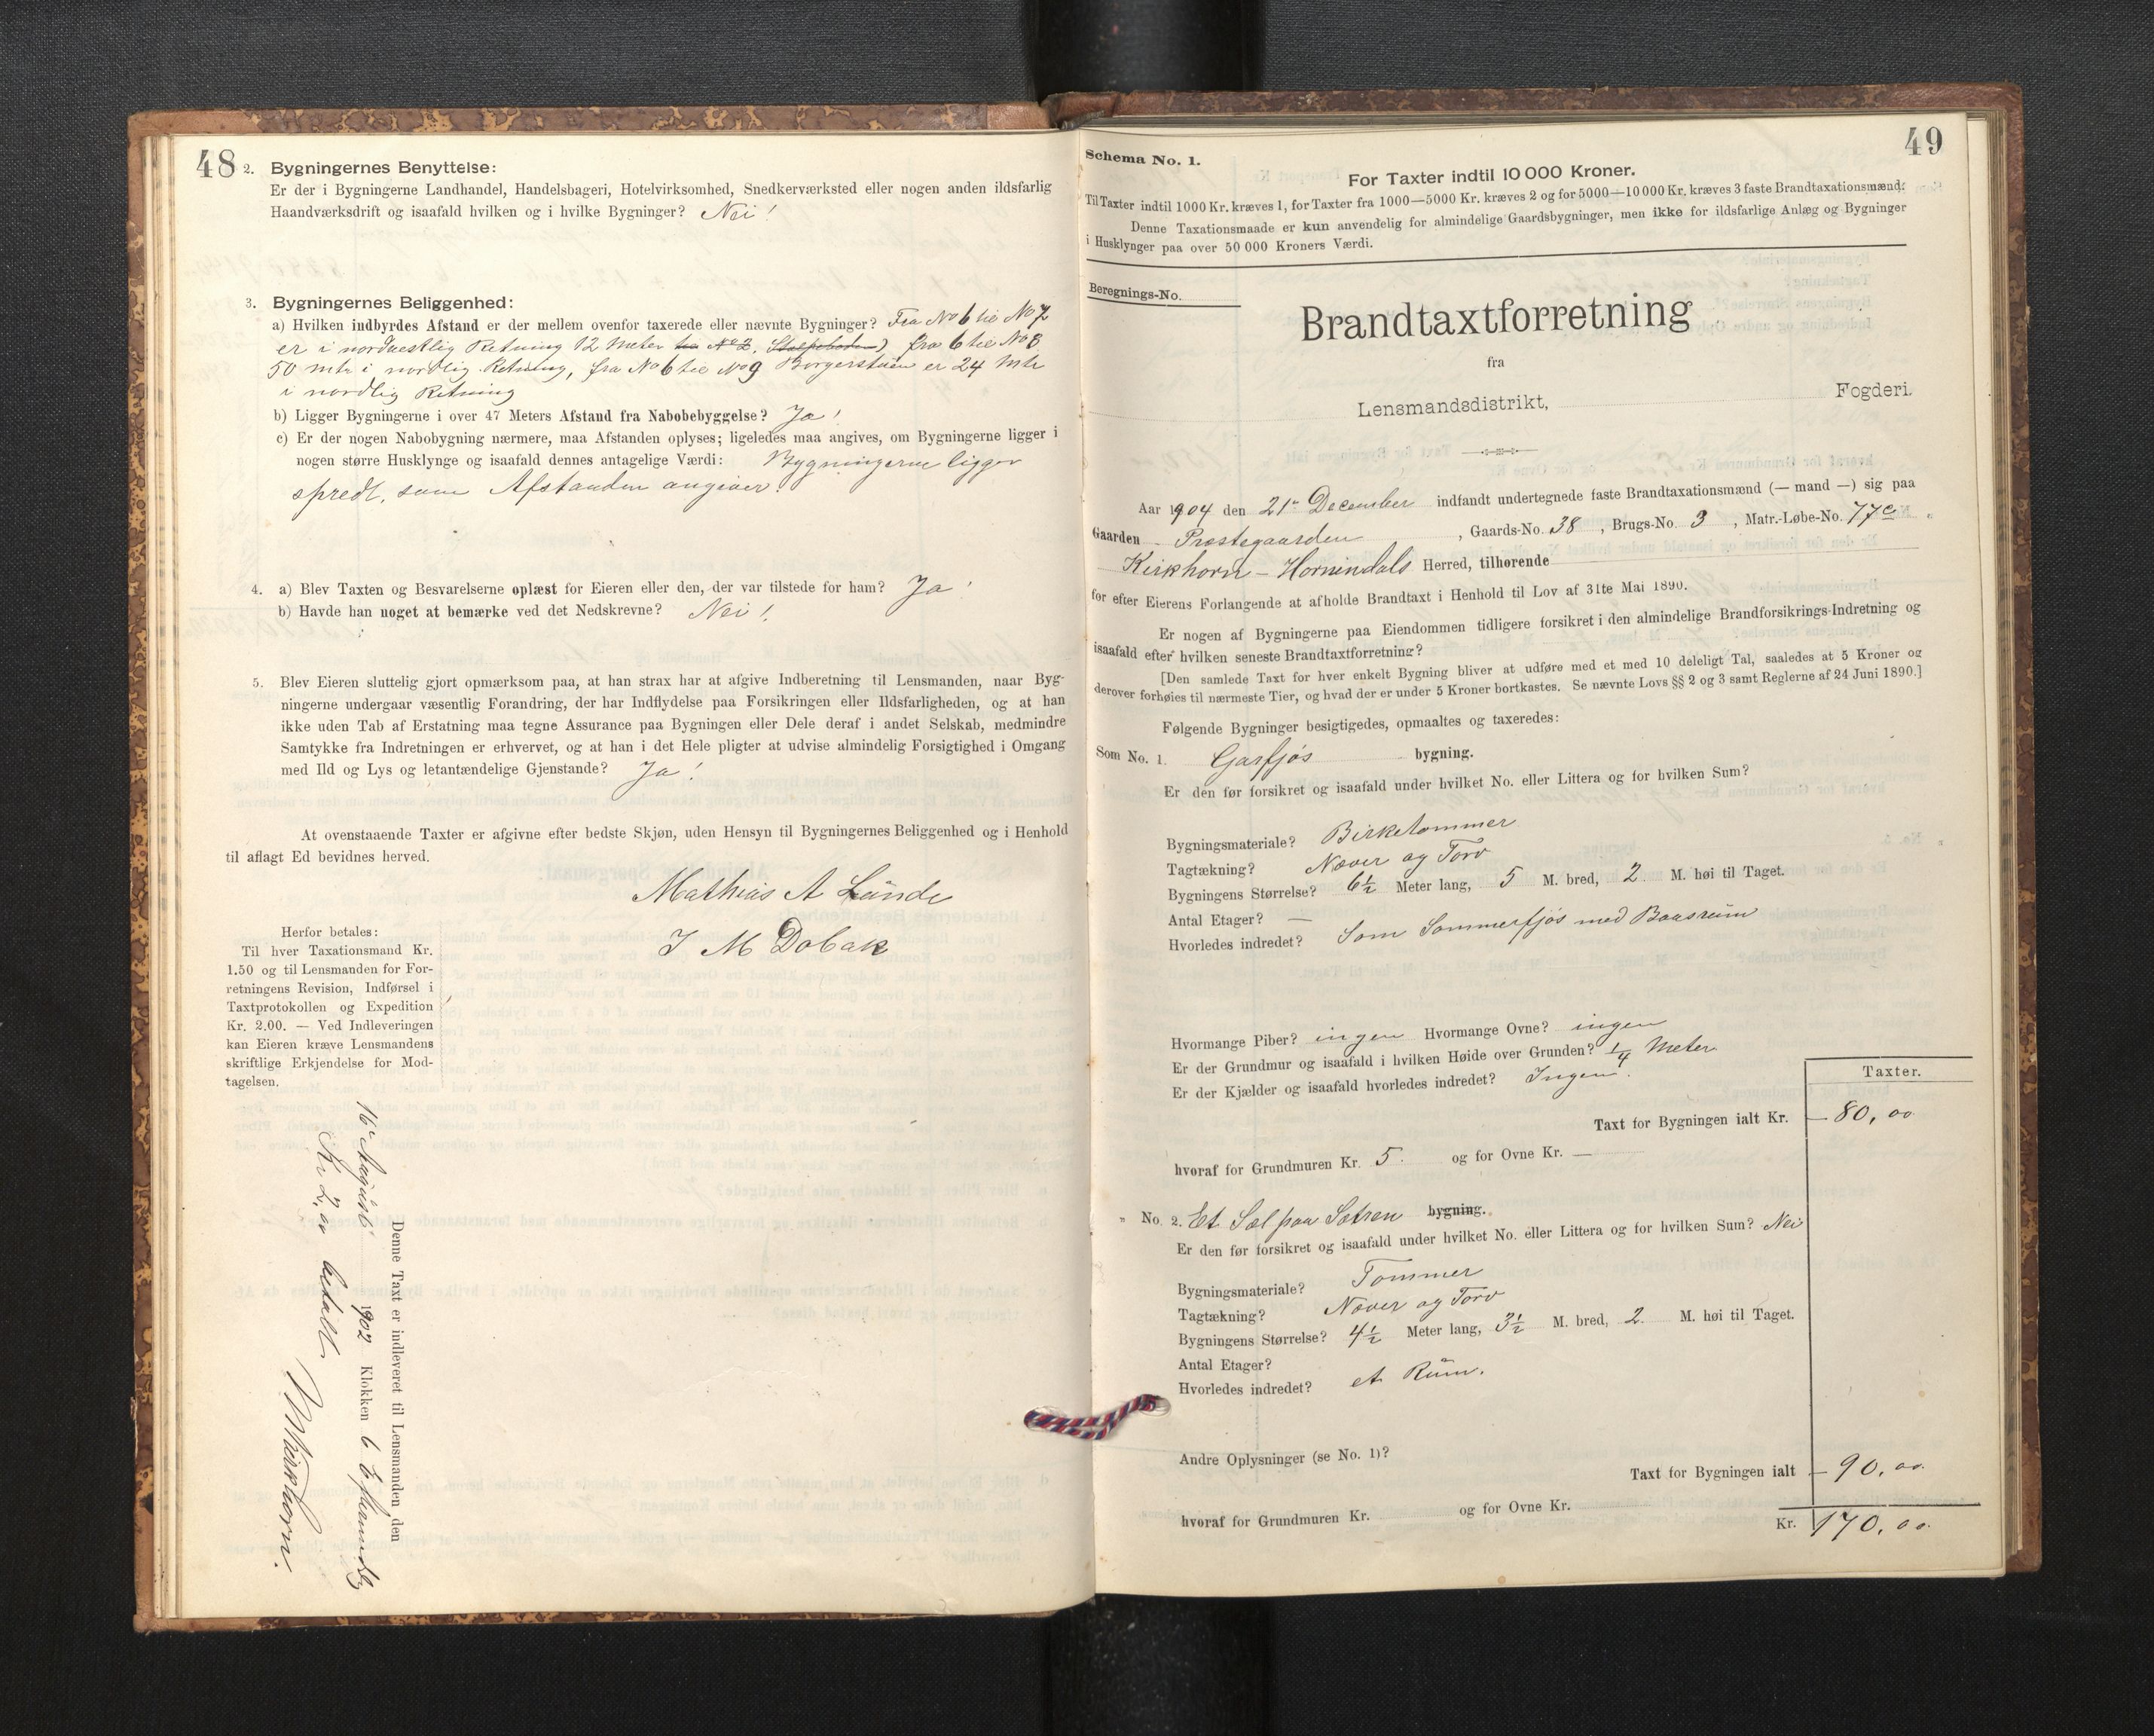 48
2. Bygningernes Benyttelse:
Er der i Bygningerne Landhandel, Handelsbageri, Hotelvirksomhed, Snedkerværksted eller nogen anden ildsfarlig
Haandværksdrift og isaafald hvilken og i hvilke Bygninger? Nei!
3. Bygningernes Beliggenhed:
a) Hvilken indbyrdes Afstand er der mellem ovenfor taxerede eller nævnte Bygninger? Fra No 6 til No 7
er i nordvestlig Retning 12 Meter fra 6 til No 8
50 mtr i nordlig Retning, fra No 6 til No 9 Borgerstuen er 24 mtr
i nordlig Retning
b) Ligger Bygningerne i over 47 Meters Afstand fra Nabobebyggelse? Ja!
c) Er der nogen Nabobygning nærmere, maa Afstanden oplyses; ligeledes maa angives, om Bygningerne ligger i
nogen større Husklynge og isaafald dennes antagelige Værdi: Bygningerne ligger
spredt, som Afstanden angiver.
4. a) Blev Taxten og Besvarelserne oplæst for Eieren eller den, der var tilstede for ham? Ja!
b) Havde han noget at bemærke ved det Nedskrevne? Nei!
5. Blev Eieren sluttelig gjort opmærksom paa, at han strax har at afgive Indberetning til Lensmanden, naar Byg-
ningerne undergaar væsentlig Forandring, der har Indflydelse paa Forsikringen eller Ildsfarligheden, og at han
ikke uden Tab af Erstatning maa tegne Assurance paa Bygningen eller Dele deraf i andet Selskab, medmindre
Samtykke fra Indretningen er erhvervet, og at han i det Hele pligter at udvise almindelig Forsigtighed i Omgang
med Ild og Lys og letantændelige Gjenstande? Ja!
At ovenstaaende Taxter er afgivne efter bedste Skjøn, uden Hensyn til Bygningernes Beliggenhed og i Henhold
til aflagt Ed bevidnes herved.
Mathias A Lunde
J M Dobak
Herfor betales:
Til hver Taxationsmand Kr.
1.50 og til Lensmanden for For-
retningens Revision, Indførsel i
Taxtprotokollen og Expedition
Kr. 2.00. — Ved Indleveringen
kan Eieren kræve Lensmandens
skriftlige Erkjendelse for Mod-
tagelsen.
Denne Taxt er indleveret til Lensmanden den
16 August 1902 Klokken 6 Eftermidg
Kr 2,00 betalt.
49
Schema No. 1.
For Taxter indtil 10 000 Kroner.
Til Taxter indtil 1000 Kr. kræves 1, for Taxter fra 1000—5000 Kr. kræves 2 og for 5000—10 000 Kr. kræves 3 faste Brandtaxationsmænd.
Denne Taxationsmaade er kun anvendelig for almindelige Gaardsbygninger, men ikke for ildsfarlige Anlæg og Bygninger
i Husklynger paa over 50 000 Kroners Værdi.
Beregnings-No.
Brandtaxtforretning
fra
Lensmandsdistrikt, Fogderi.
Aar 1904 den 21 December indfandt undertegnede faste Brandtaxationsmænd (— mand —) sig paa
Gaarden Prestegaarden, Gaards-No. 38, Brugs-No. 3, Matr.-Løbe-No. 77c
Kirkhorn – Hornindals Herred, tilhørende
for efter Eierens Forlangende at afholde Brandtaxt i Henhold til Lov af 31te Mai 1890.
Er nogen af Bygningerne paa Eiendommen tidligere forsikret i den almindelige Brandforsikrings-Indretning og
isaafald efter hvilken seneste Brandtaxtforretning?
[Den samlede Taxt for hver enkelt Bygning bliver at udføre med et med 10 deleligt Tal, saaledes at 5 Kroner og
derover forhøies til nærmeste Tier, og hvad der er under 5 Kroner bortkastes. Se nævnte Lovs §§ 2 og 3 samt Reglerne af 24 Juni 1890.]
Følgende Bygninger besigtigedes, opmaaltes og taxeredes:
Som No. 1. Garfjøs bygning.
Er den før forsikret og isaafald under hvilket No. eller Littera og for hvilken Sum?
Bygningsmateriale? Birketømmer
Tagtækning? Næver og Torv
Bygningens Størrelse? 6½ Meter lang, 5 M. bred, 2 M. høi til Taget.
Antal Etager? —
Hvorledes indredet? Som Sommerfjøs med Baasrum
Hvormange Piber? ingen Hvormange Ovne? ingen
Er der Grundmur og isaafald i hvilken Høide over Grunden? ¼ Meter.
Er der Kjælder og isaafald hvorledes indredet? Ingen.
Taxter.
Taxt for Bygningen ialt Kr. 80,00
hvoraf for Grundmuren Kr. 5. og for Ovne Kr. —
" No. 2. Et Sæl paa Sætren bygning.
Er den før forsikret og isaafald under hvilket No. eller Littera og for hvilken Sum? Nei
Bygningsmateriale? Tømmer
Tagtækning? Næver og Torv
Bygningens Størrelse? 4½ Meter lang, 3½ M. bred, 2 M. høi til Taget.
Antal Etager?
Hvorledes indredet? et Rum.
Andre Oplysninger (se No. 1)?
Taxt for Bygningen ialt 90,00
hvoraf for Grundmuren Kr. og for Ovne Kr.
Kr. 170,00